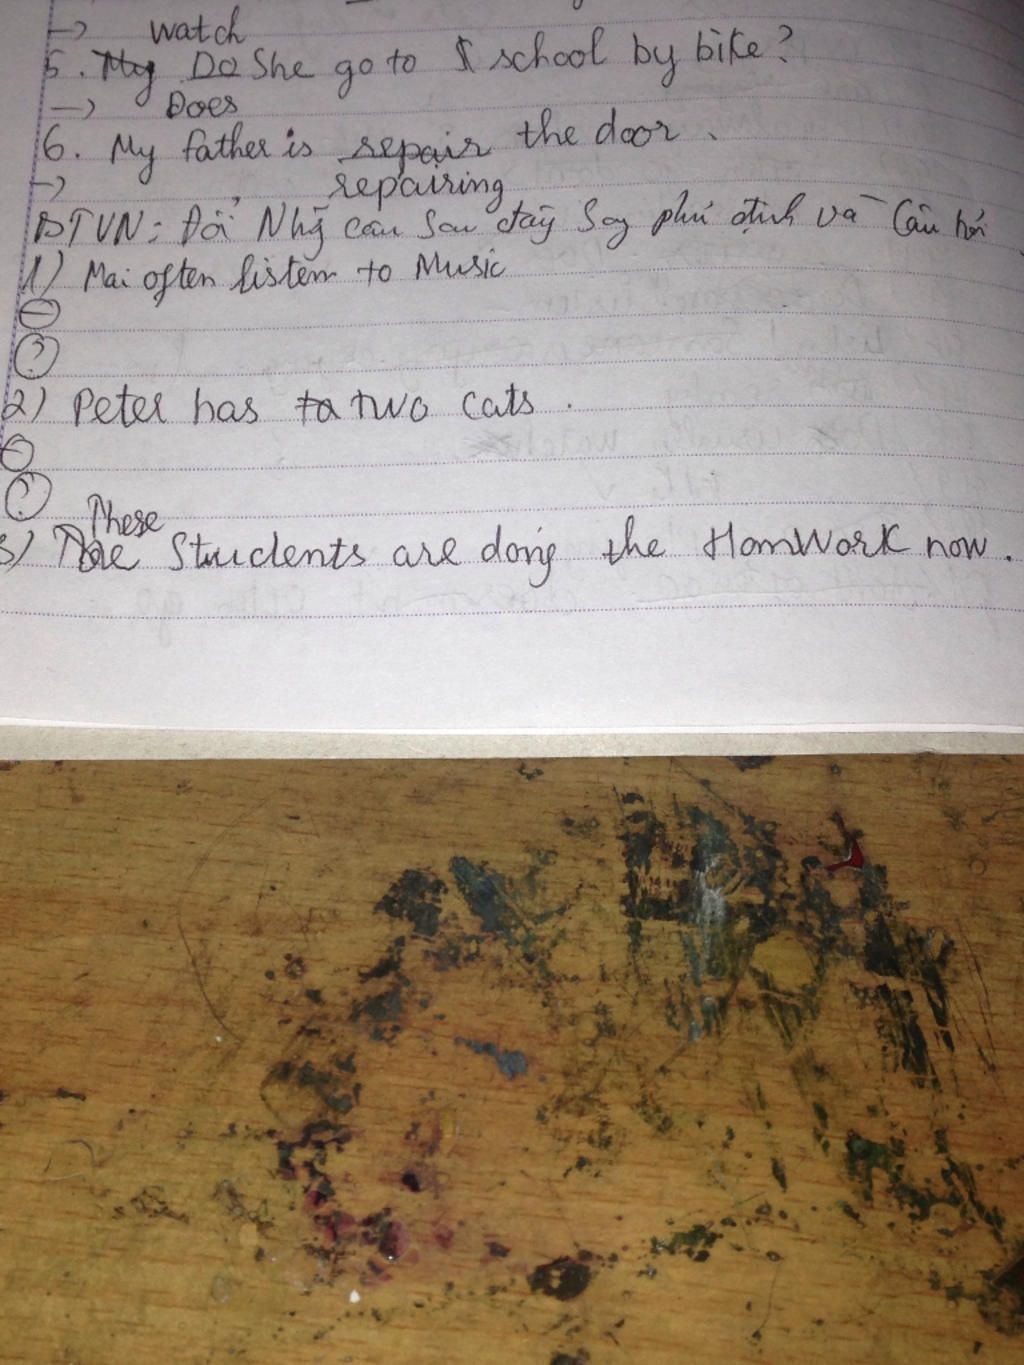 → watch
5. My Do She go to $ school by bike?
→ Does
6. My father is repair the door.
→ repairing
BTVN: Đổi Nhg câu sau đây Sag phủ định và Câu hỏi
1) Mai often listem to Music
⊖
?
2) Peter has ta two cats.
⊖
?
These
3) Students are doing the HomWork now.